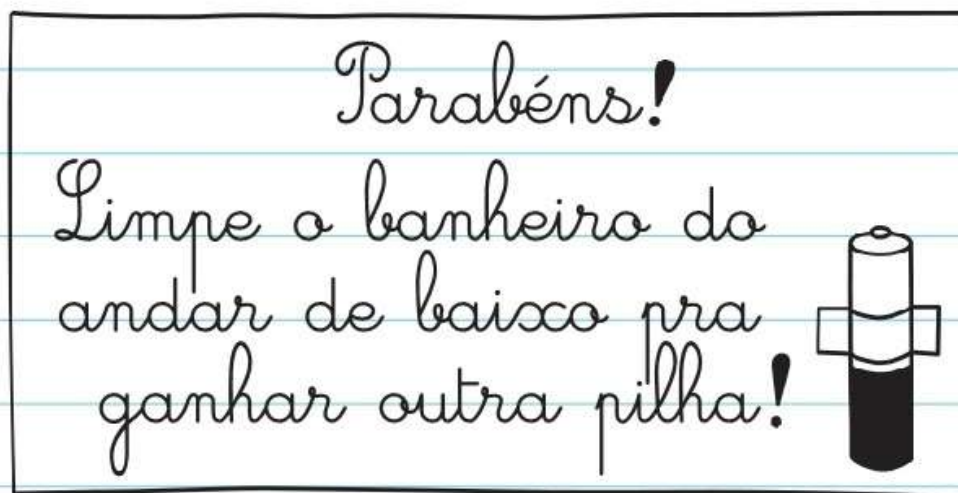 Parabéns!
Limpe o banheiro do
andar de baixo pra
ganhar outra pilha!